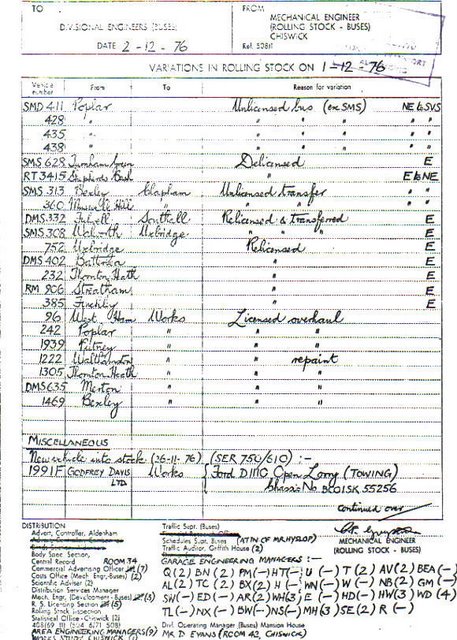 TO
DIVISIONAL ENGINEERS (BUSES)
DATE 2-12-76
FROM
MECHANICAL ENGINEER
(ROLLING STOCK - BUSES)
CHISWICK
Ref. 508/1
VARIATIONS IN ROLLING STOCK ON 1-12-76
Vehicle number From To Reason for variation
SMD 411 Poplar Unlicensed bus (ex SMS) NE to SVS
428 " " " " " "
435 " " " " "
438 " " " " " "
SMS 628 Turnham Green Delicensed E
RT 3415 Shepherds Bush " E to NE
SMS 313 Bexley Clapham Unlicensed transfer " "
360 Muswell Hill " " " " "
DMS 332 Fulwell Southall Relicensed & transferred E
SMS 308 Walworth Uxbridge " " " E
752 Uxbridge Relicensed E
DMS 402 Battersea " E
232 Thornton Heath " E
RM 906 Streatham " E
385 Finchley " E
96 West Ham Works Licensed overhaul
242 Poplar " " "
1939 Putney " " "
1222 Walthamstow " " repaint
1305 Thornton Heath " " "
DMS 635 Merton " " "
1469 Bexley " " "
MISCELLANEOUS
New vehicle into stock (26-11-76) (SER 750/610) :-
1991F GODFREY DAVIS LTD. Works Ford D1110 Open Lorry (TOWING)
Chassis No BC01SK 55256
continued over
MECHANICAL ENGINEER
(ROLLING STOCK - BUSES)
DISTRIBUTION
Advert. Controller, Aldenham
Body Spec. Section,
Central Record ROOM 34
Commercial Advertising Officer (7)
Costs Office (Mech. Engr.-Buses) (2)
Scientific Adviser (2)
Distribution Services Manager
Mech. Engr. (Development - Buses) (5)
R. S. Licensing Section (5)
Rolling Stock Inspection
Statistical Office - Chiswick (2)
AREA ENGINEERING MANAGERS (9)
Traffic Supt. (Buses)
Schedules Supt. (Buses) (ATTN OF MR HYSLOP)
Traffic Auditor, Griffith House (2)
GARAGE ENGINEERING MANAGERS :-
Q (2) BN (2) PM (-) HT (-) U (-) T (2) AV (2) BEA (-)
AL (2) TC (2) BX (2) H (-) WN (-) W (-) NB (2) GM (-)
SW (-) ED (-) AR (2) WH (3) E (-) HD (-) HW (3) WD (4)
TL (-) NX (-) BW (-) NS (-) MH (3) SE (2) R (-)
Div. Operating Manager (Buses) Mansion House
MR D EVANS (ROOM 43, CHISWICK)